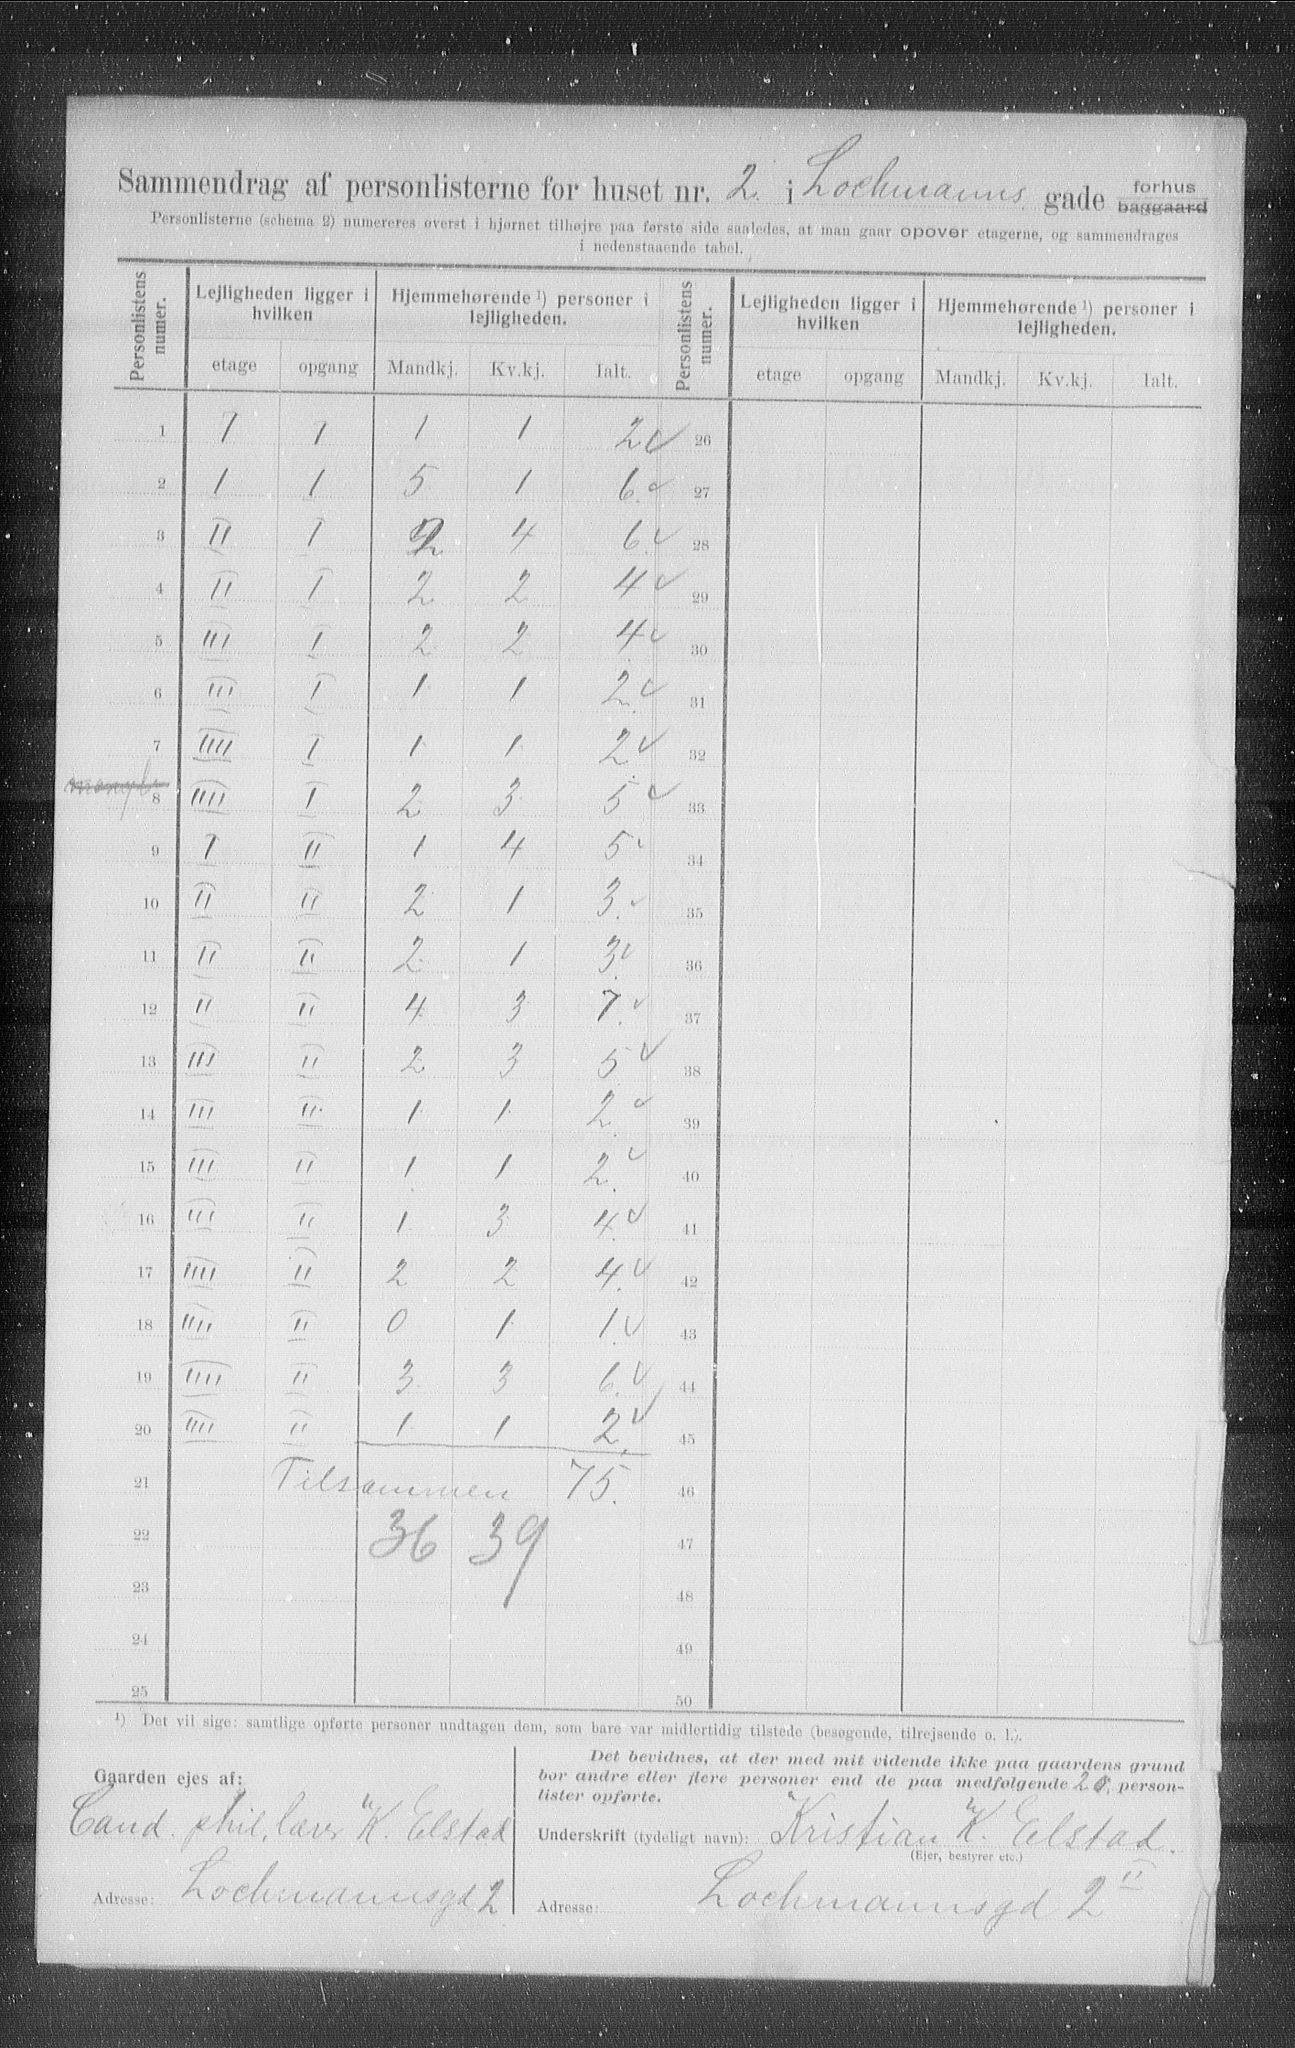 Sammendrag af personlisterne for huset nr. 2. i Lochmanns gade forhus baggaard
Personlisterne (schema 2) numereres øverst i hjørnet tilhøjre paa første side saaledes, at man gaar opover etagerne, og sammendrages
i nedenstaaende tabel.
Personlistens numer. Lejligheden ligger i hvilken Hjemmehørende ¹) personer i lejligheden. Personlistens numer. Lejligheden ligger i hvilken Hjemmehørende ¹) personer i lejligheden.
etage opgang Mandkj. Kv.kj. Ialt. etage opgang Mandkj. Kv.kj. Ialt.
1 I I 1 1 2 26
2 I I 5 1 6. 27
3 II I 2 4 6. 28
4 II I 2 2 4 29
5 III I 2 2 4 30
6 III I 1 1 2. 31
7 IIII I 1 1 2. 32
mangler
8 IIII I 2 3 5 33
9 I II 1 4 5 34
10 II II 2 1 3. 35
11 II II 2 1 3. 36
12 II II 4 3 7. 37
13 III II 2 3 5 38
14 III II 1 1 2. 39
15 III II 1 1 2. 40
16 III II 1 3 4. 41
17 IIII II 2 2 4. 42
18 IIII II 0 1 1. 43
19 IIII II 3 3 6. 44
20 IIII II 1 1 2. 45
21 Tilsammen 75. 46
22 36 39 47
23 48
24 49
25 50
¹) Det vil sige: samtlige opførte personer undtagen dem, som bare var midlertidig tilstede (besøgende, tilrejsende o. l.).
Gaarden ejes af:
Cand. phil, lærer K. Elstad
Adresse: Lochmannsgd 2
Det bevidnes, at der med mit vidende ikke paa gaardens grund
bor andre eller flere personer end de paa medfølgende 20, person-
lister opførte.
Underskrift (tydeligt navn): Kristian K. Elstad.
(Ejer, bestyrer etc.)
Adresse: Lochmannsgd 2 II